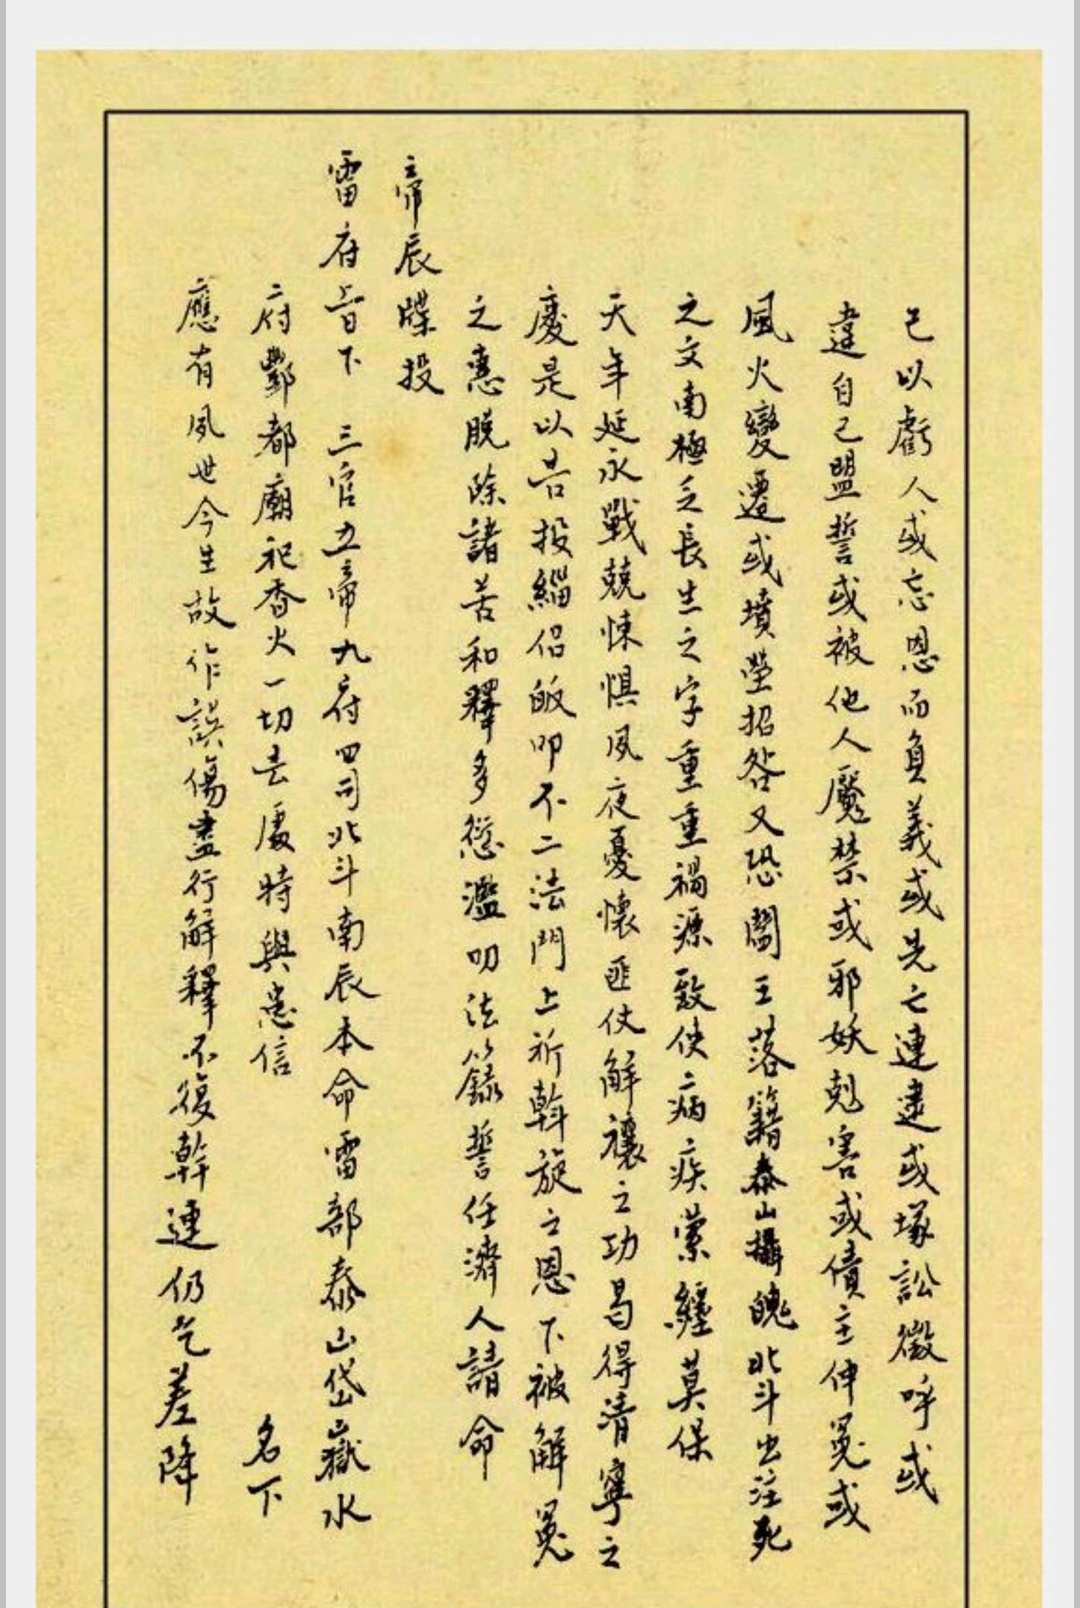 己以虧人或忘恩而負義或先亡連逮或塚訟徵呼或
違自己盟誓或被他人魘禁或邪妖剋害或債主伸冤或
風火變遷或墳塋招咎又恐閻王落籍泰山攝魄北斗出注死
之文南極乏長生之字重重禍源致使病疾縈纏莫保
天年延永戰兢悚惧夙夜憂懷匪仗解禳之功曷得清寧之
慶是以告投緇侣皈叩不二法門上祈斡旋之恩下被解冤
之惠脱除諸苦和釋多愆濫叨法籙誓任濟人請命
帝辰牒投
雷府旨下 三官五帝九府四司北斗南辰本命雷部泰山岱嶽水
府酆都廟祀香火一切去處特與患信 名下
應有夙世今生故作誤傷盡行解釋不復幹連仍乞差降